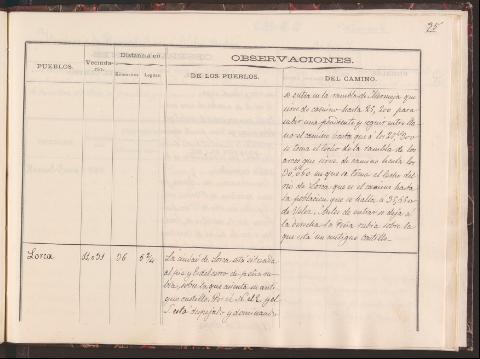 25
PUEBLOS.
Vecindario.
Distancia en
Kilómetros
Leguas
OBSERVACIONES.
DE LOS PUEBLOS.
DEL CAMINO.
se entra en la rambla de que
sirve de camino hasta 25,200 para
subir una pendiente y seguir entre lla-
no el camino hasta que á los
se toma el lecho de la rambla de los
arcos que sirve de camino hasta los
en que se toma el lecho del
rio de Lorca, que es el camino hasta
la poblacion que se halla á
de Velez. Antes de entrar se deja á
la derecha la Peña rubia sobre la
que está un antiguo castillo.
Lorca
36
La ciudad de Lorca está situada
al pie y del cerro de peña ru-
bia, sobre la que asienta su anti-
guo castillo. Por el N. el E. y el
S. está despejado y dominando